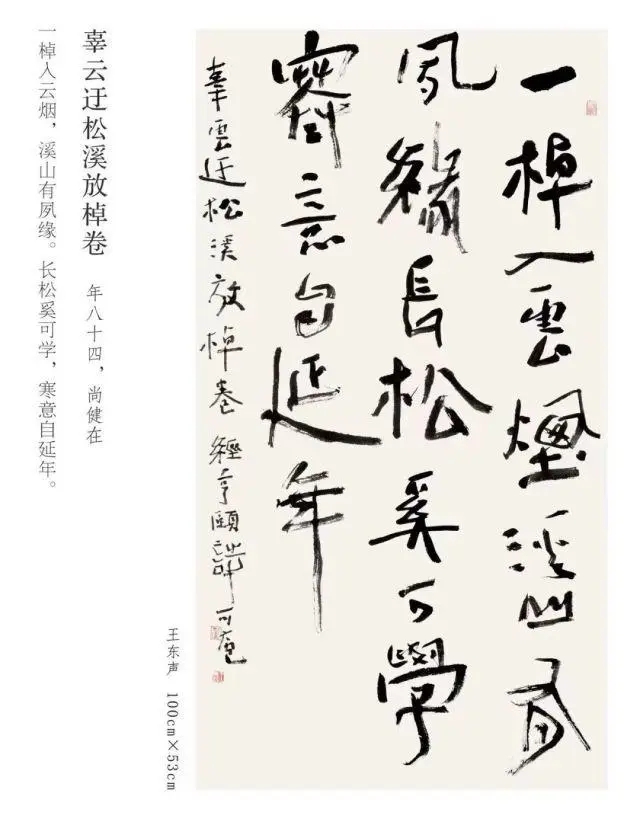 一棹入雲煙溪山有
夙緣長松奚可學
寒意自延年
辜雲迂松溪放棹卷 經亨頤詩 可庵
王东声 100cm×53cm
辜云迂松溪放棹卷 年八十四，尚健在
一棹入云烟，溪山有夙缘。长松奚可学，寒意自延年。